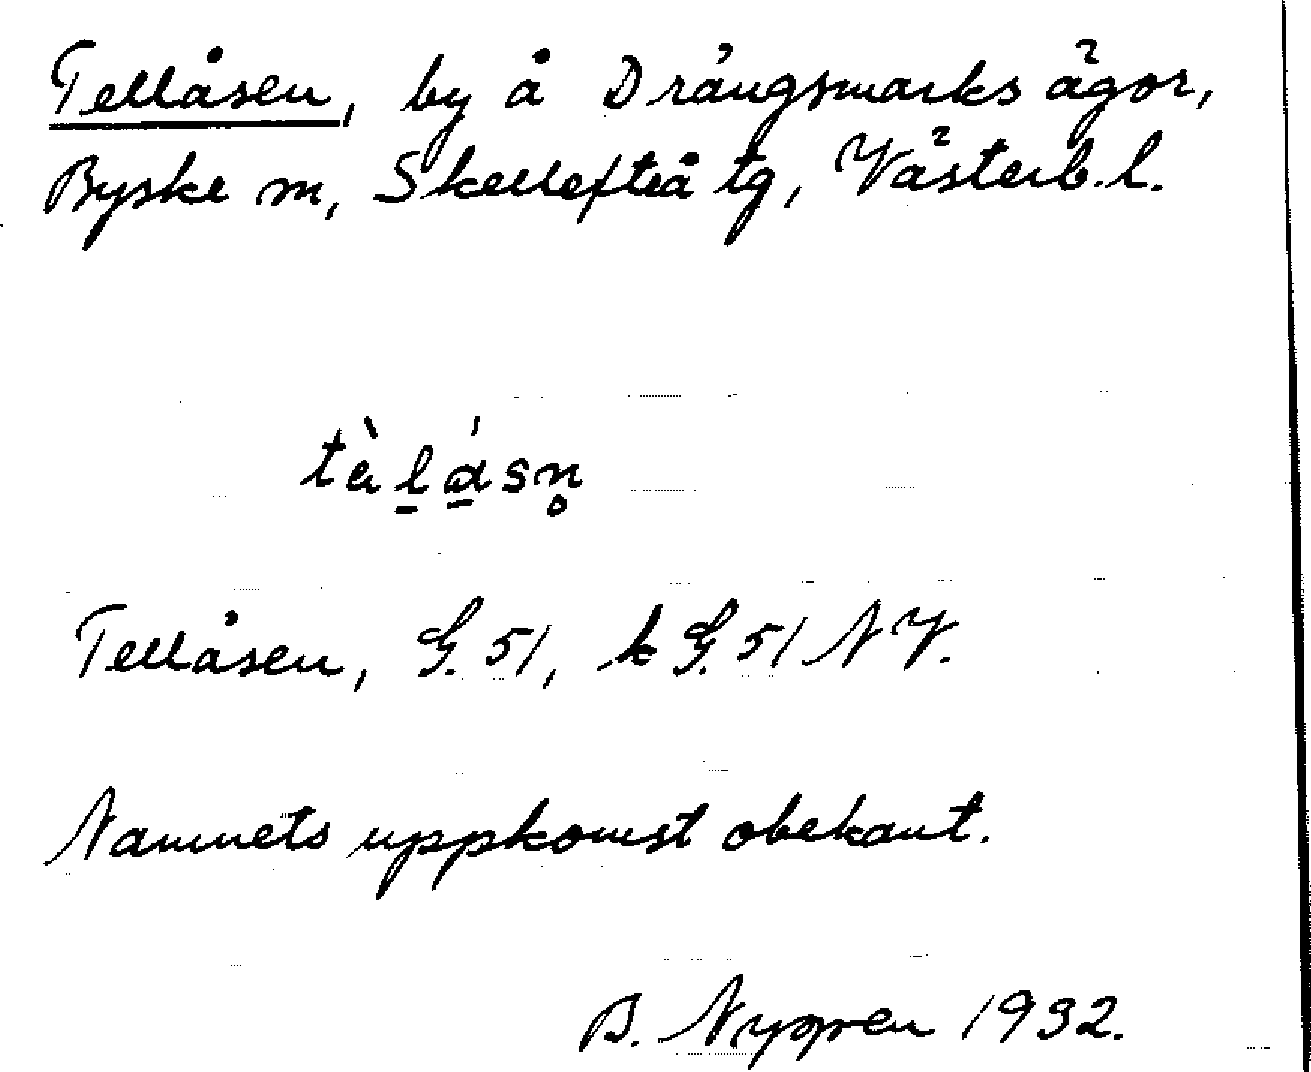 Tellåsen, by å Drängsmarks ägor,
Byske sn, Skellefteå tg, Västerb. l.
tèl̠á̠sn̥
Tellåsen, G. 51, k G. 51 NV.
Namnets uppkomst obekant.
B. Nygren 1932.